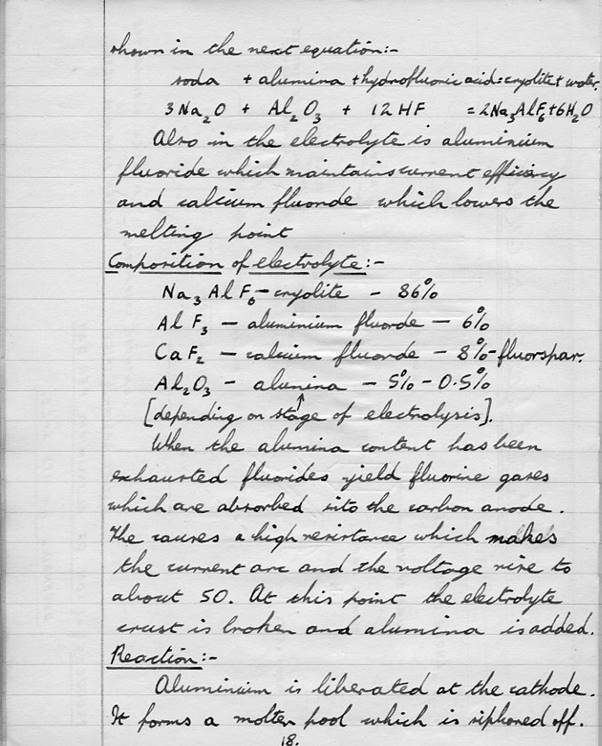 shown in the next equation:-
soda + alumina + hydrofluoric acid = cryolite + water.
3Na₂O + Al₂O₃ + 12HF = 2Na₃AlF₆ + 6H₂O
Also in the electrolyte is aluminium
fluoride which maintains current efficiency
and calcium fluoride which lowers the
melting point
Composition of electrolyte:-
Na₃AlF₆ - cryolite - 86%
AlF₃ - aluminium fluorde - 6%
CaF₂ - calcium fluoride - 8% - fluorspar.
Al₂O₃ - alumina - 5% - 0.5%
[depending on stage of electrolysis].
When the alumina content has been
exhausted fluorides yield fluorine gases
which are absorbed into the carbon anode.
The causes a high resistance which makes
the current arc and the voltage rise to
about 50. At this point the electrolyte
crust is broken and alumina is added.
Reaction:-
Aluminium is liberated at the cathode.
It forms a molten pool which is siphoned off.
18.